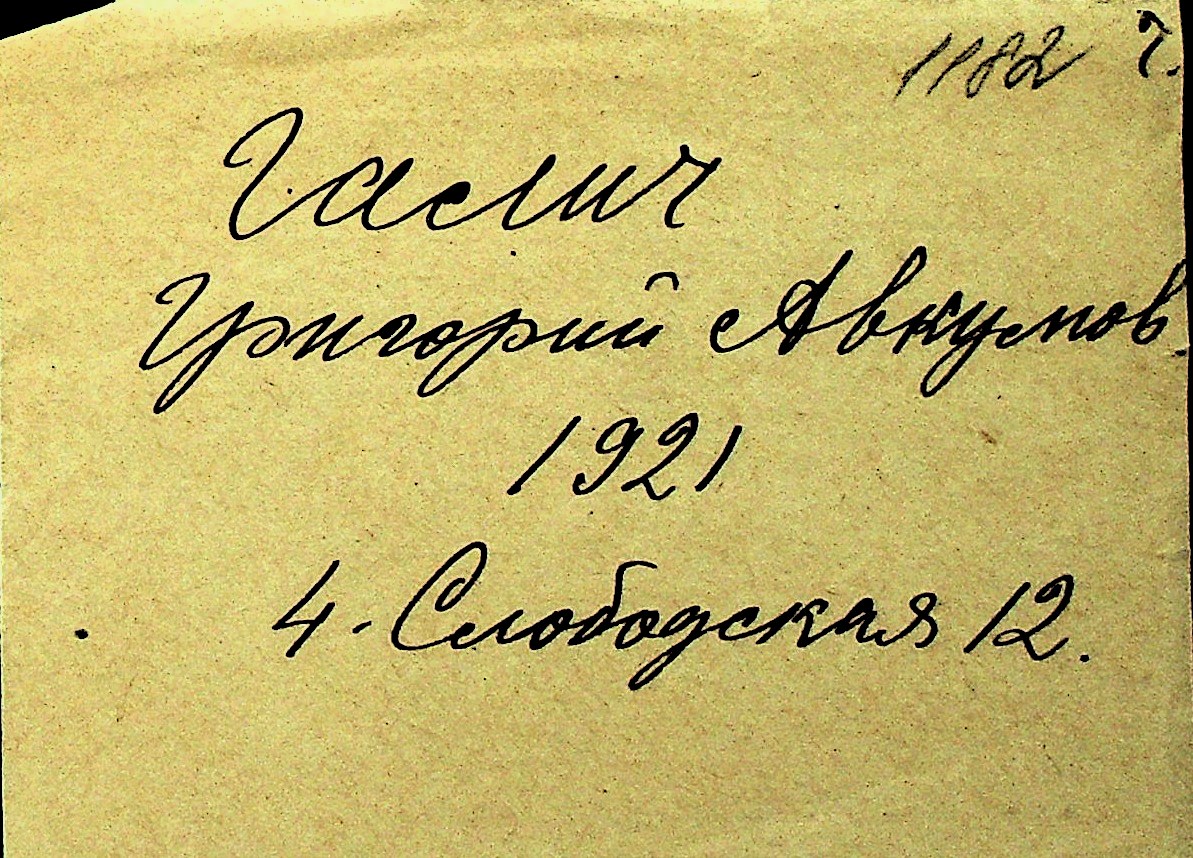 1182 7.
Гаслич
Григорий Авкумов.
1921
4-Слободская 12.